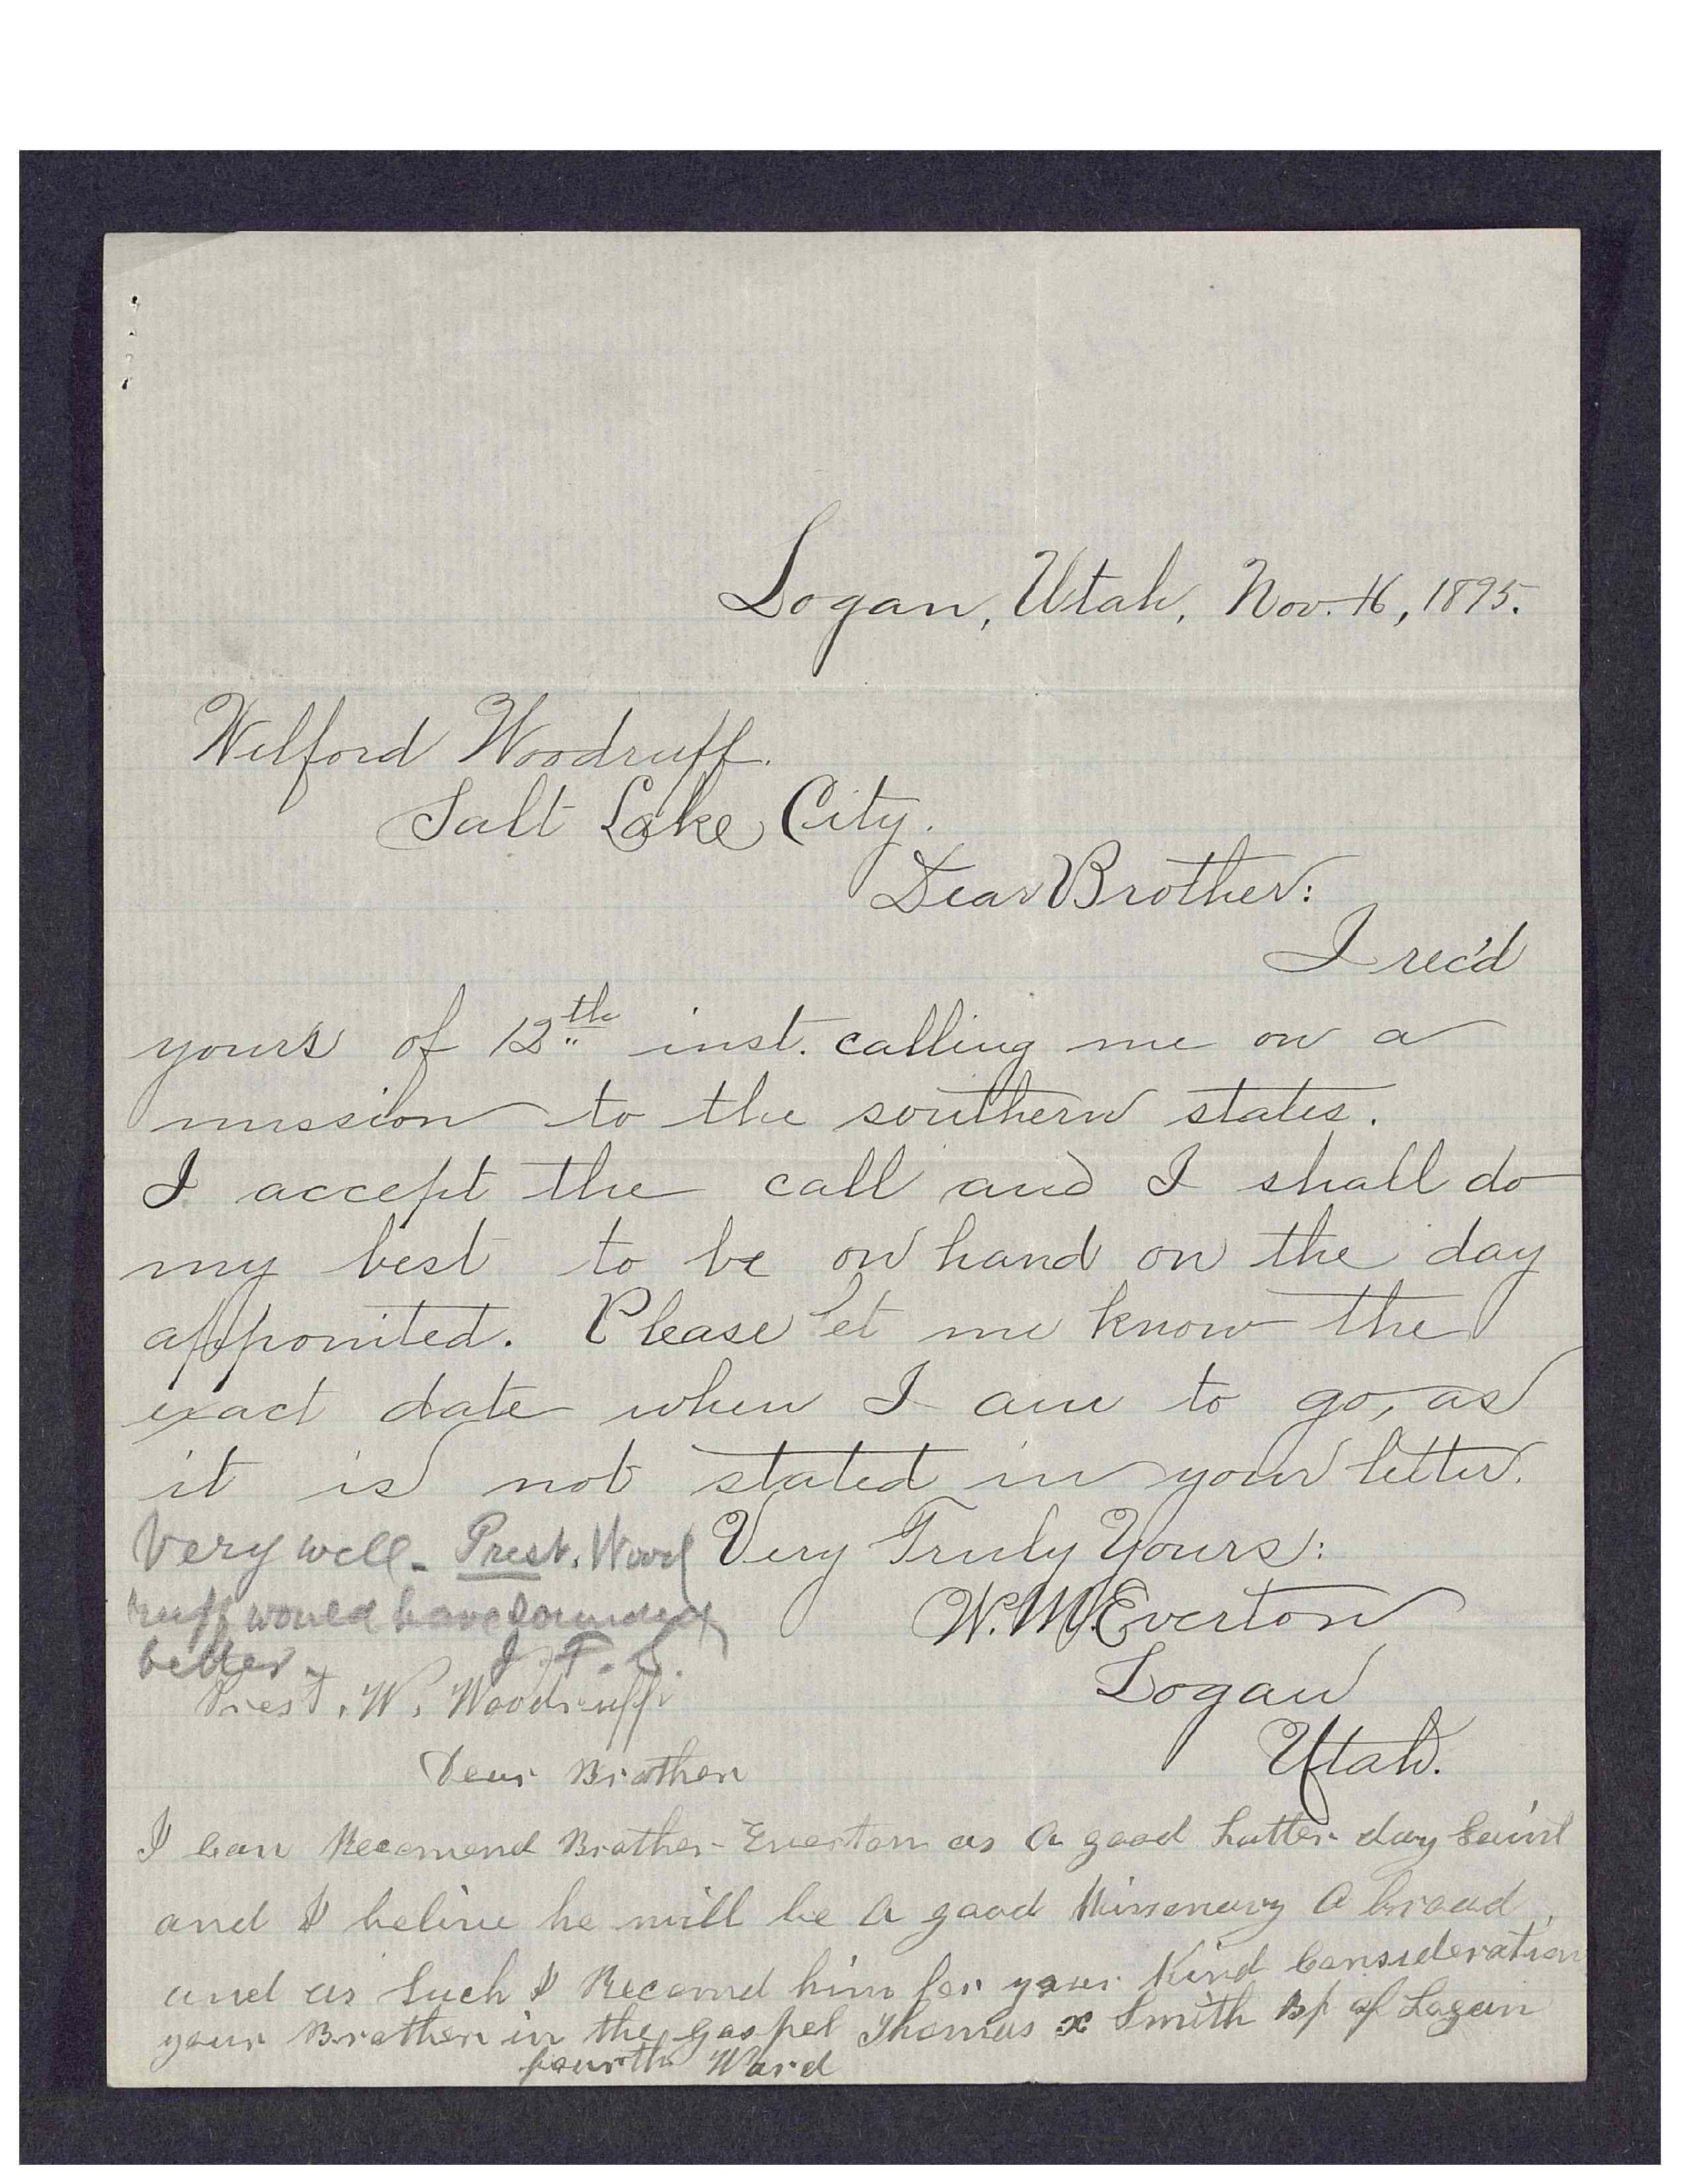 Logan, Utah, Nov. 16, 1895.
Wilford Woodruff.
Salt Lake City.
Dear Brother:
I rec'd
yours of 12th inst. calling me on a
mission to the southern states.
I accept the call and I shall do
my best to be on hand on the day
appointed. Please let me know the
exact date when I am to go, as
it is not stated in your letter.
Very Truly Yours:
W. M. Everton
Logan
Utah.
Very well - Prest. Wood
ruff would have sounded
better. J. F. S.
Prest. W. Woodruff
Dear Brother
I Can Recomend Brother Everton as A good Latter day Saint
and I belive he will be A good Missenary A broad,
and as Such I Recomd him for your Kind Consideration
your Brother in the gospel Thomas X Smith Bp of Logan
fourth Ward